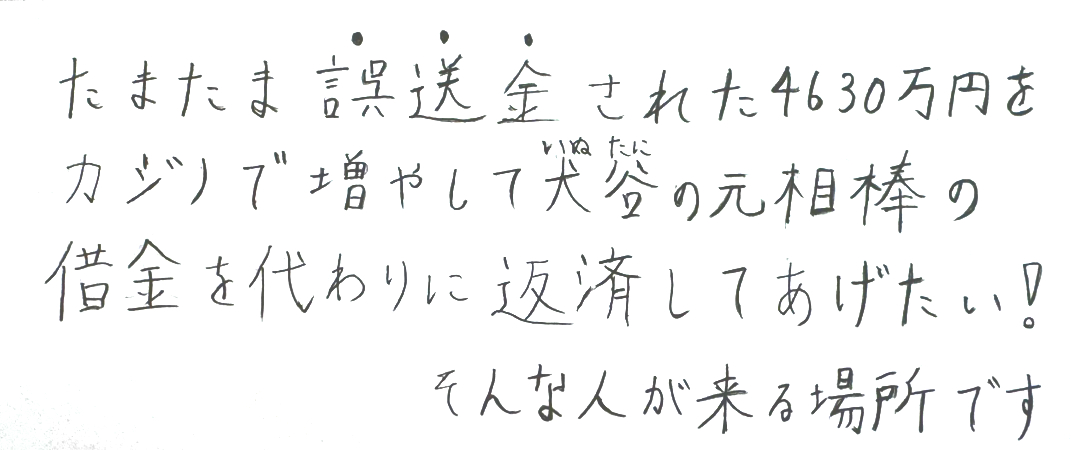 たまたま誤送金された4630万円を
カジノで増やして犬谷の元相棒の
いぬ たに
借金を代わりに返済してあげたい!
そんな人が来る場所です